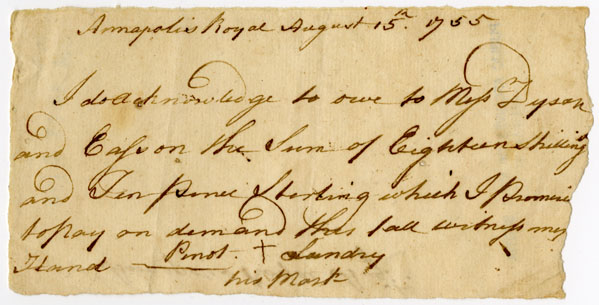 Annapolis Royal August 15th. 1755
I do acknowledge to owe to Mess Dyson
and Easson the Sum of Eighteen Shilling
and Ten pence Sterling which I Promise
to pay on demand this fall witness my
Hand Pinot + Landry
his Mark